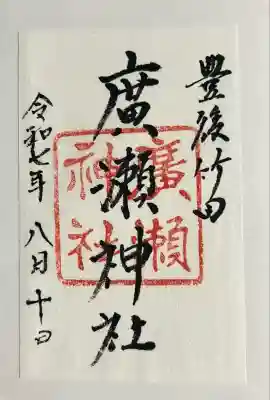 豊後竹田
廣瀬神社
廣瀬
神社
令和七年 八月十日